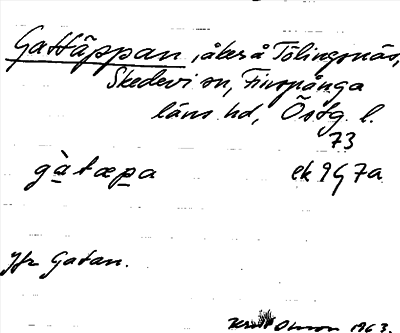 Gattäppan, åker å Tölingsnäs,
Skedevi sn, Finspånga
läns hd, Östg. l.
73
gàtæpa ek 9 G 7a
Jfr Gatan.
Olsson 1963.